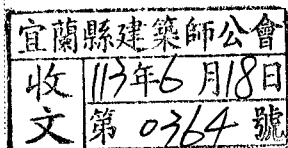 宜蘭縣建築師公會
收文 113年6月18日
第 0364 號